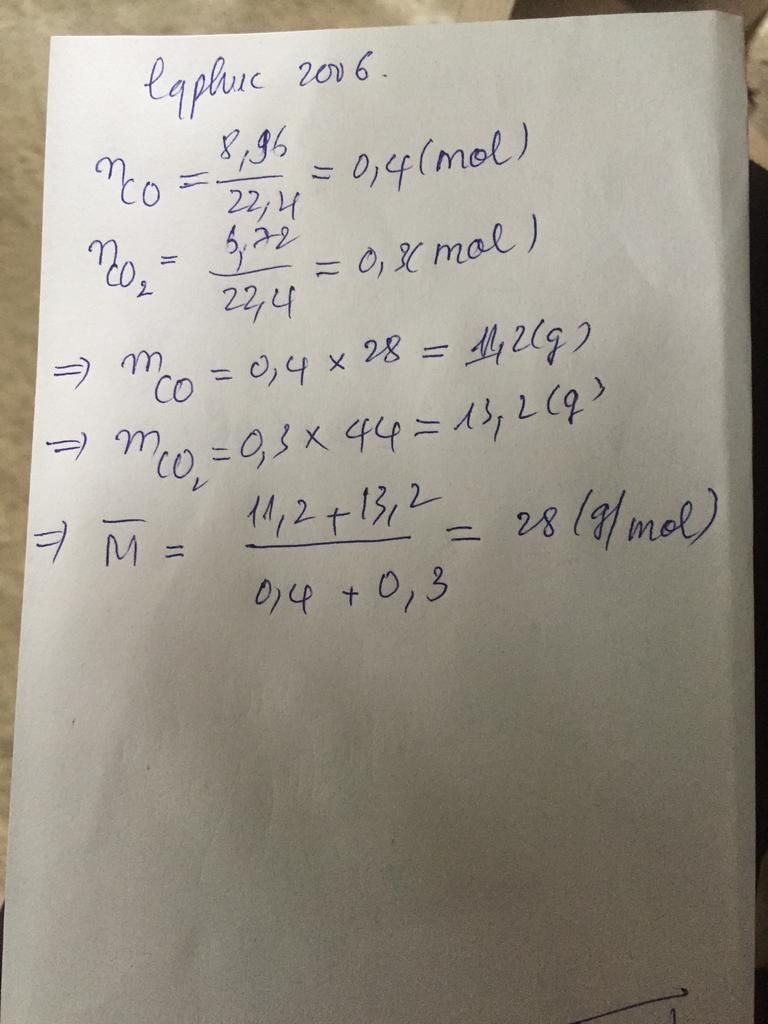 lqphuc 2006.
n_CO = 8,96 / 22,4 = 0,4 (mol)
n_CO₂ = 6,72 / 22,4 = 0,3 (mol)
=> m_CO = 0,4 × 28 = 11,2 (g)
=> m_CO₂ = 0,3 × 44 = 13,2 (g)
=> M̅ = 11,2 + 13,2 / 0,4 + 0,3 = 28 (g/mol)